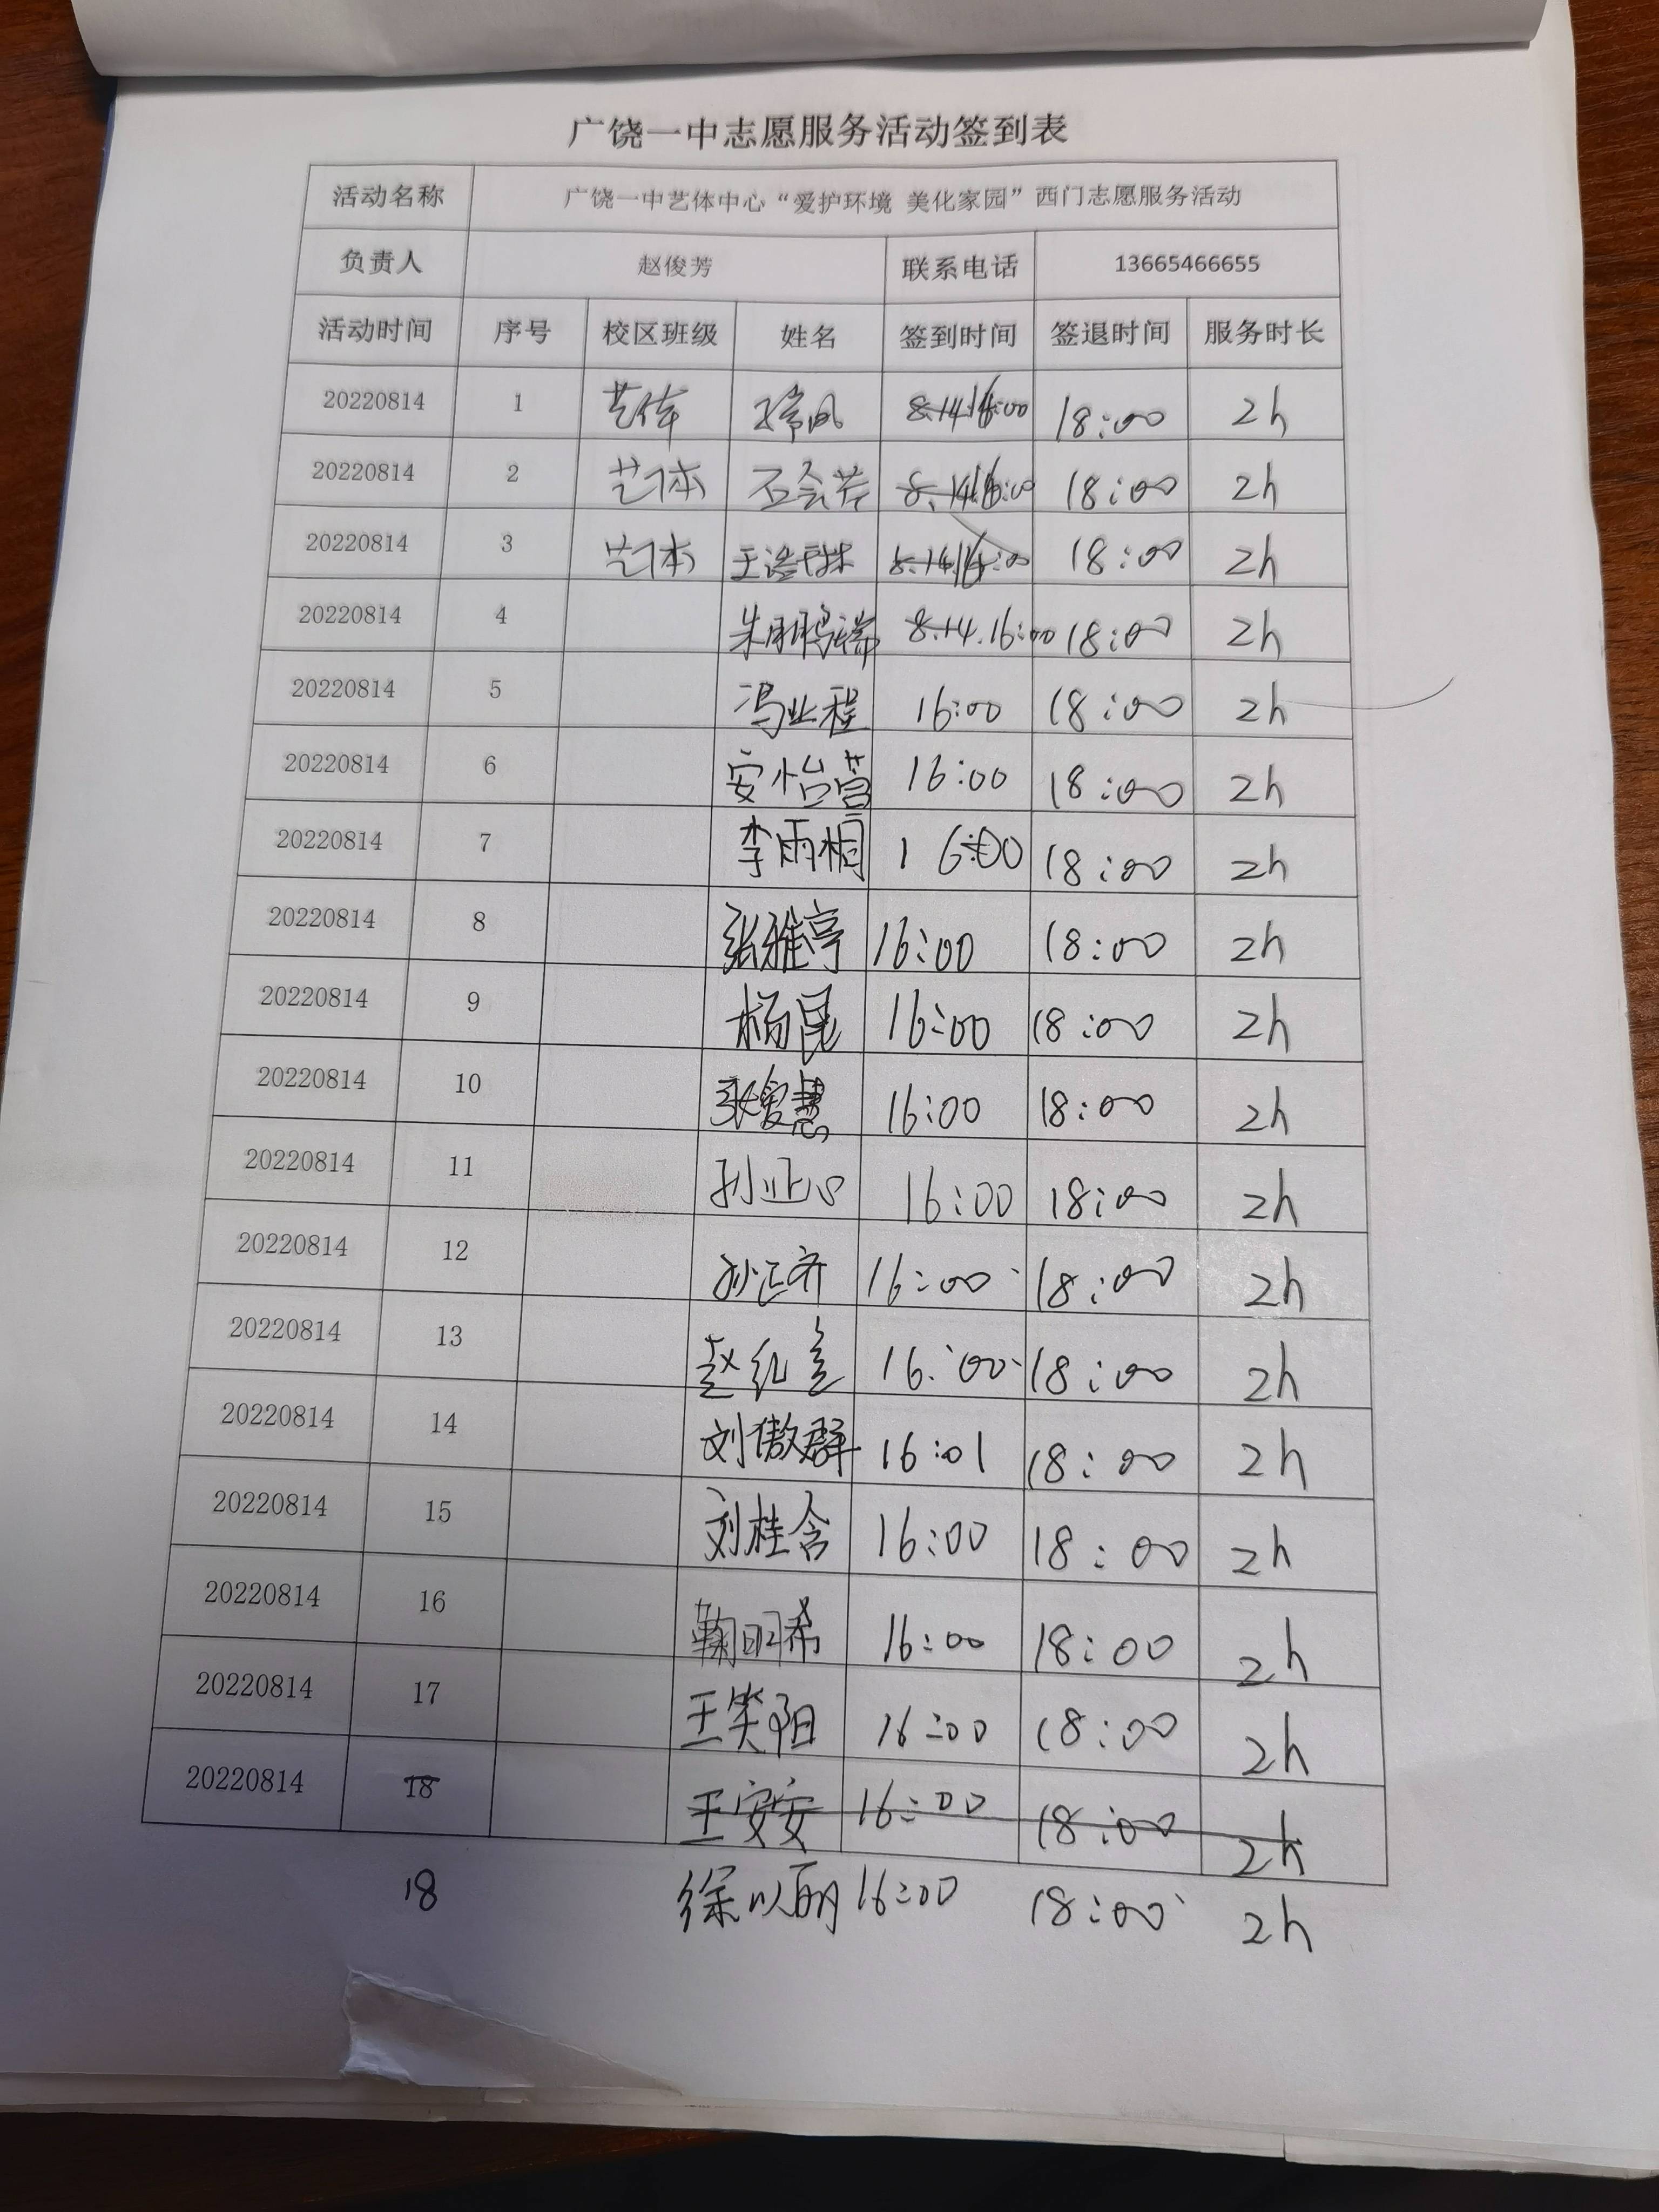 广饶一中志愿服务活动签到表
活动名称 广饶一中艺体中心“爱护环境 美化家园”西门志愿服务活动
负责人 赵俊芳 联系电话 13665466655
活动时间 序号 校区班级 姓名 签到时间 签退时间 服务时长
20220814 1 艺体 8.14 16:00 18:00 2h
20220814 2 艺体 石会芳 8.14 16:00 18:00 2h
20220814 3 艺体 8.14 16:00 18:00 2h
20220814 4 朱鹏瑞 8.14.16:00 18:00 2h
20220814 5 冯业程 16:00 18:00 2h
20220814 6 安怡萱 16:00 18:00 2h
20220814 7 李雨桐 16:00 18:00 2h
20220814 8 张雅亭 16:00 18:00 2h
20220814 9 杨昆 16:00 18:00 2h
20220814 10 16:00 18:00 2h
20220814 11 孙正心 16:00 18:00 2h
20220814 12 孙正齐 16:00 18:00 2h
20220814 13 16:00 18:00 2h
20220814 14 刘傲群 16:01 18:00 2h
20220814 15 刘桂含 16:00 18:00 2h
20220814 16 鞠明希 16:00 18:00 2h
20220814 17 王笑阳 16:00 18:00 2h
20220814 18 王安安 16:00 18:00 2h
18 徐以丽 16:00 18:00 2h